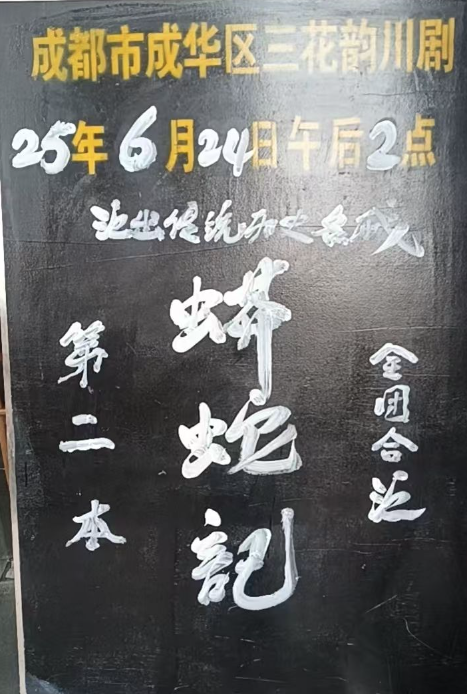 成都市成华区三花韵川剧
25年6月24日午后2点
泛出传统历史条戏
蟒蛇记
第二本
全团合泛